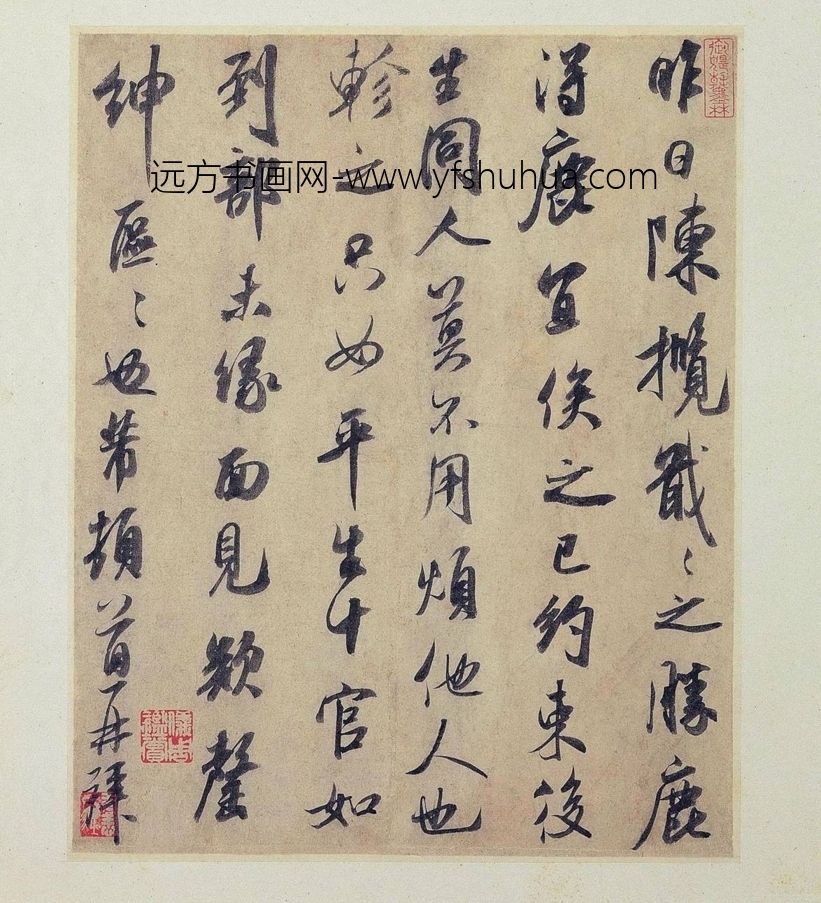 昨日陳攬戢〻之勝鹿
得鹿宜俟之已約束後
生同人莫不用煩他人也
軫之只如平生十官如
到部未緣面見款罄
紳區〻也芾頓首再拜
远方书画网-www.yfshuhua.com